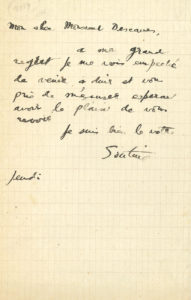 Mon cher Monsieur Descaves,
à mon grand
regret je me vois empêché
de venir et vous
prie de m'excuser espérant
avoir le plaisir de vous
revoir
je suis bien le votre
Jeudi